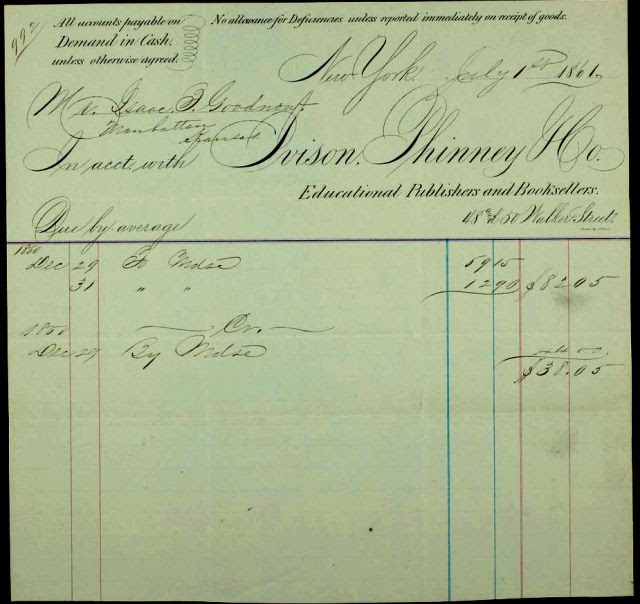 992
All accounts payable on
Demand in Cash.
unless otherwise agreed.
No allowance for Deficiencies unless reported immediately on receipt of goods.
New York. July 1st 1861.
Mr. Isaac T. Goodnow
Manhattan
Kansas
In acct. with Ivison, Phinney & Co.
Educational Publishers and Booksellers.
48 & 50 Walker Street.
Due by average
1860
Dec 29 To Mdse 5915
31 " " 1290 $82.05
1860 Cr.
Dec 29 By Mdse 44 00
$38.05